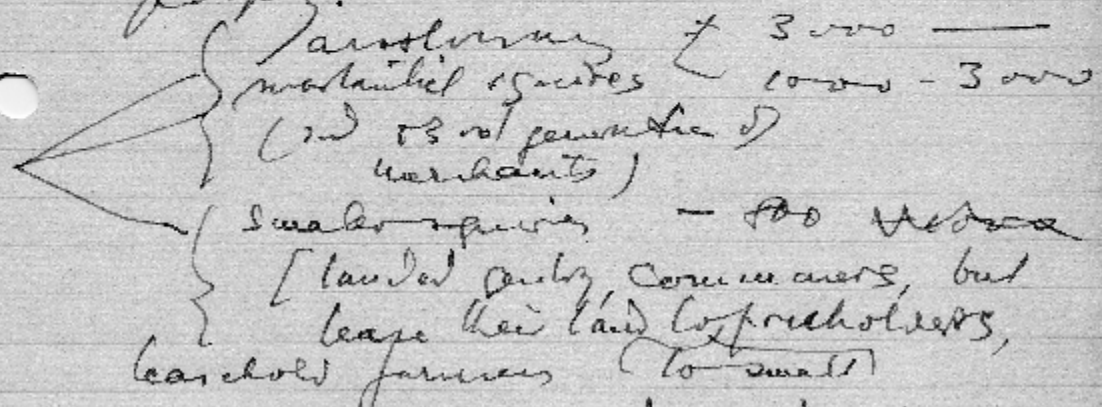 aristocracy £ 3000 —
substantial squires 1000 - 3000
(2nd & 3rd generation of
merchants)
smaller squires - 800
[landed gentry, commoners, but
lease their land to freeholders,
leasehold farmers (to small)